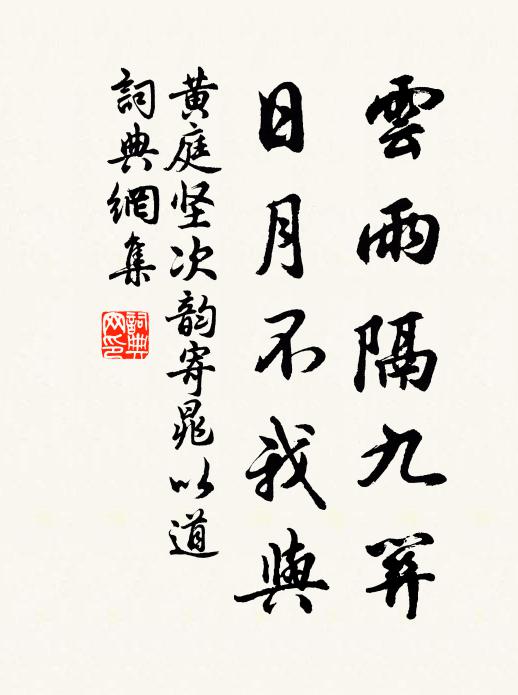 雲雨隔九關
日月不我與
黃庭坚次韵寄晁以道
詞典網集
詞典网印